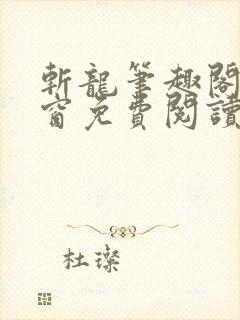 斬龍筆趣閣
窗免費閱讀
杜璨